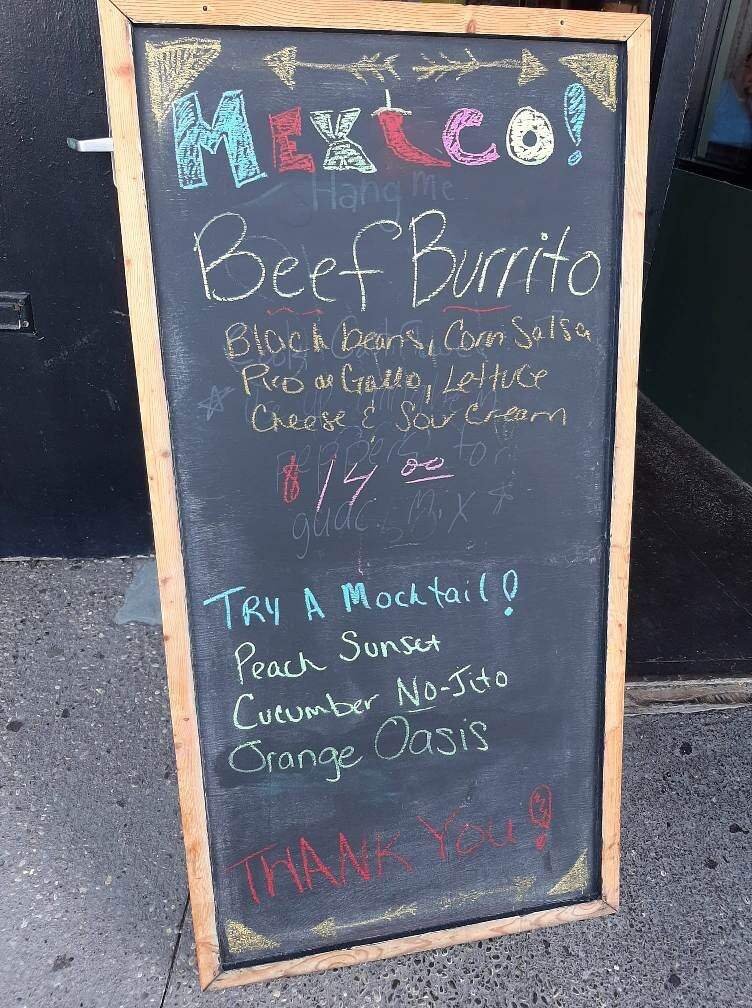 MEXICO!
Hang me
Beef Burrito
Black beans, Corn Salsa
Pico de Gallo, Lettuce
Cheese & Sour Cream
$14.00
guac Mix
TRY A Mocktail!
Peach Sunset
Cucumber No-Jito
Orange Oasis
THANK You!